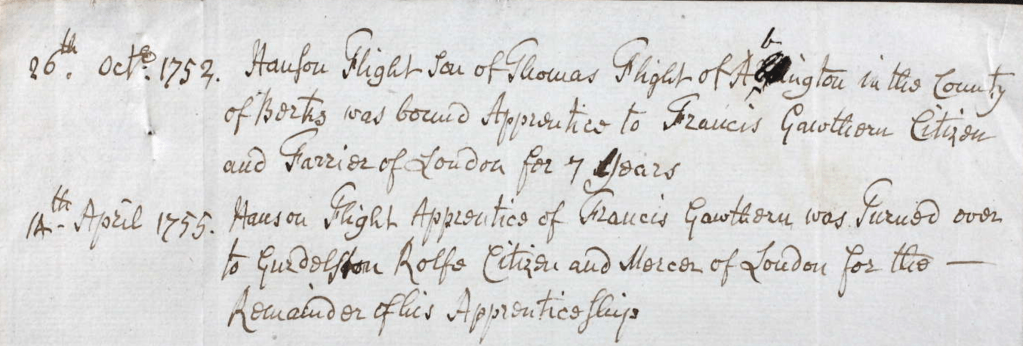 26th. Octr. 1752. Hanson Flight Son of Thomas Flight of Abington in the County
of Berks was bound Apprentice to Francis Gawthern Citizen
and Farrier of London for 7 Years
14th April 1755. Hanson Flight Apprentice of Francis Gawthern was Turned over
to Gurdelston Rolfe Citizen and Mercer of London for the —
Remainder of his Apprenticeship